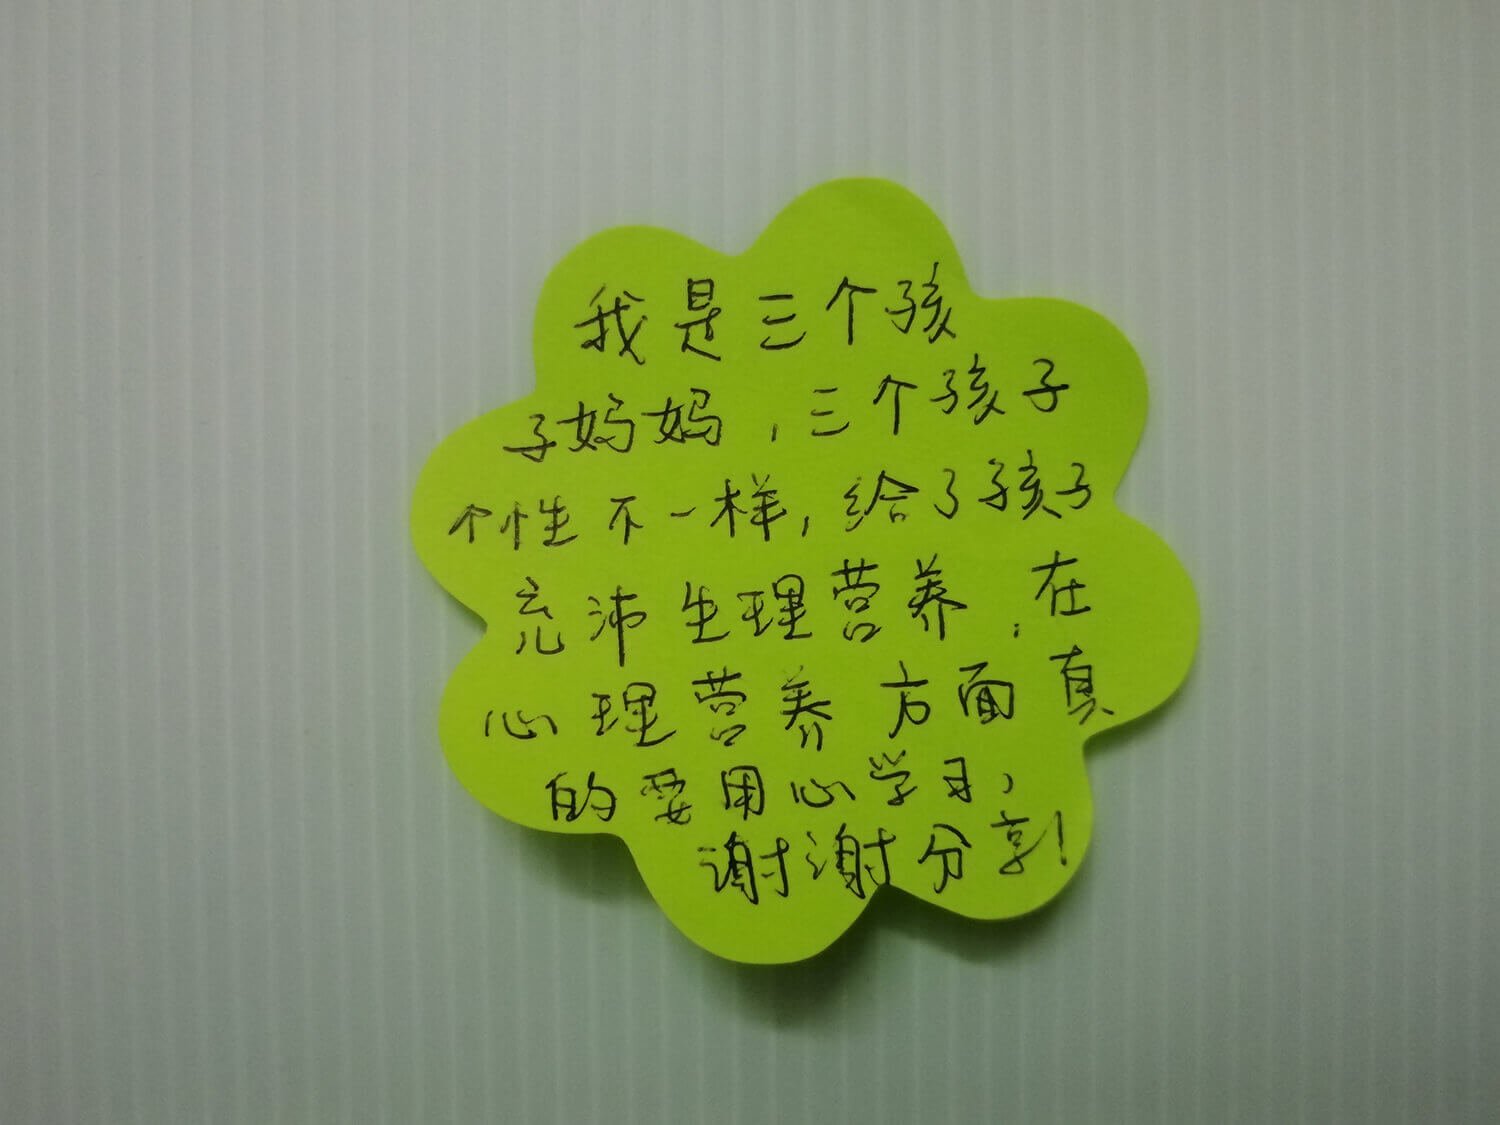 我是三个孩
子妈妈，三个孩子
个性不一样，给了孩子
充沛生理营养，在
心理营养方面真
的要用心学习，
谢谢分享！